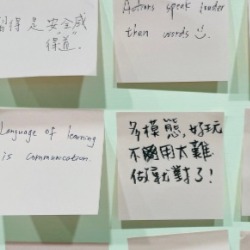 得是"安全感
"得道".
Actions speak louder
than words
Language of learning
is communication.
多模態,好玩
不用太難
做就對了!